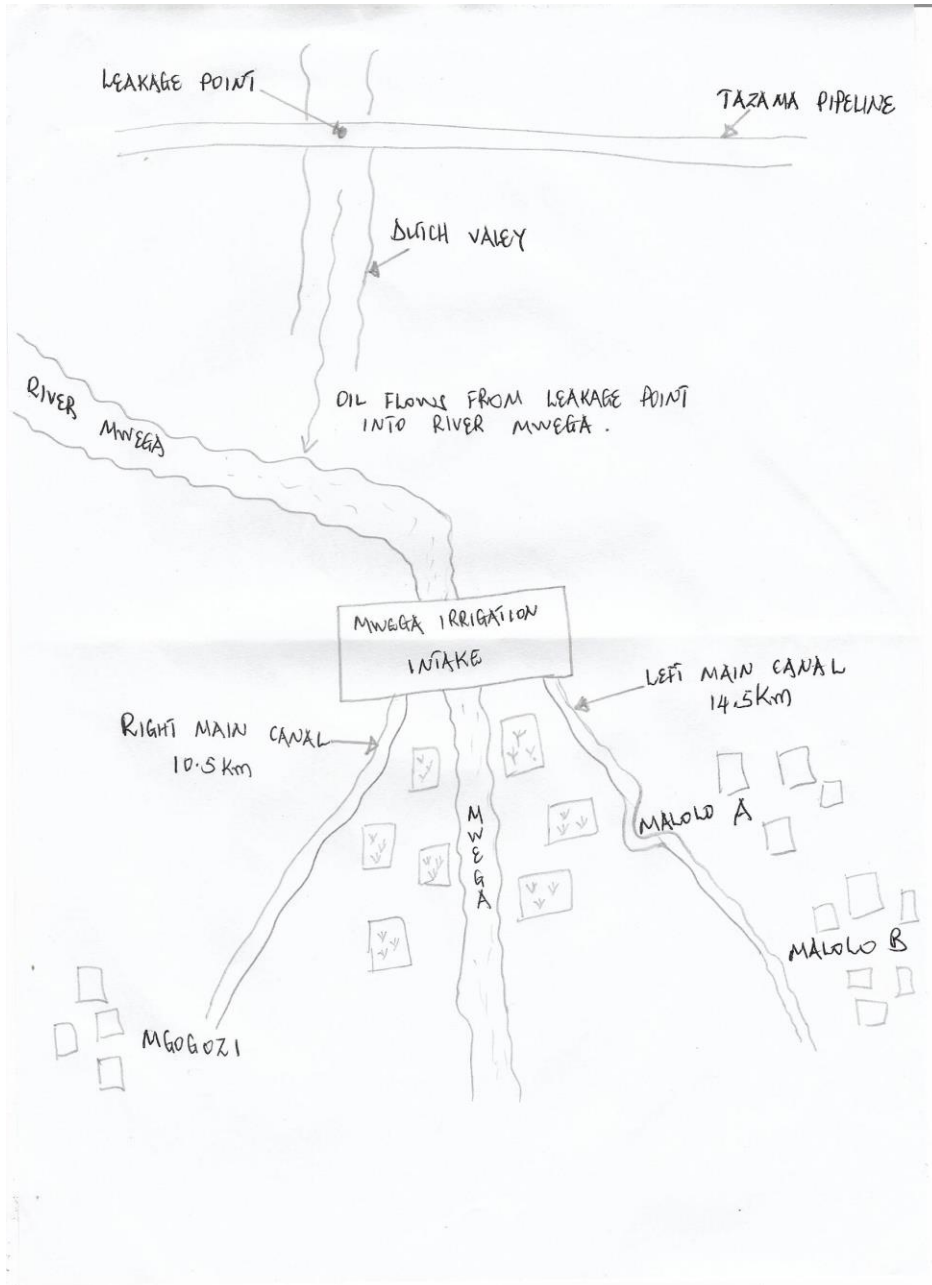 LEAKAGE POINT
TAZAMA PIPELINE
DUTCH VALEY
OIL FLOWS FROM LEAKAGE POINT
INTO RIVER MWEGA.
RIVER
MWEGA
MWEGA IRRIGATION
INTAKE
LEFT MAIN CANAL
14.5Km
RIGHT MAIN CANAL
10.5Km
MWEGA
MALOLO A
MALOLO B
MGOGOZI